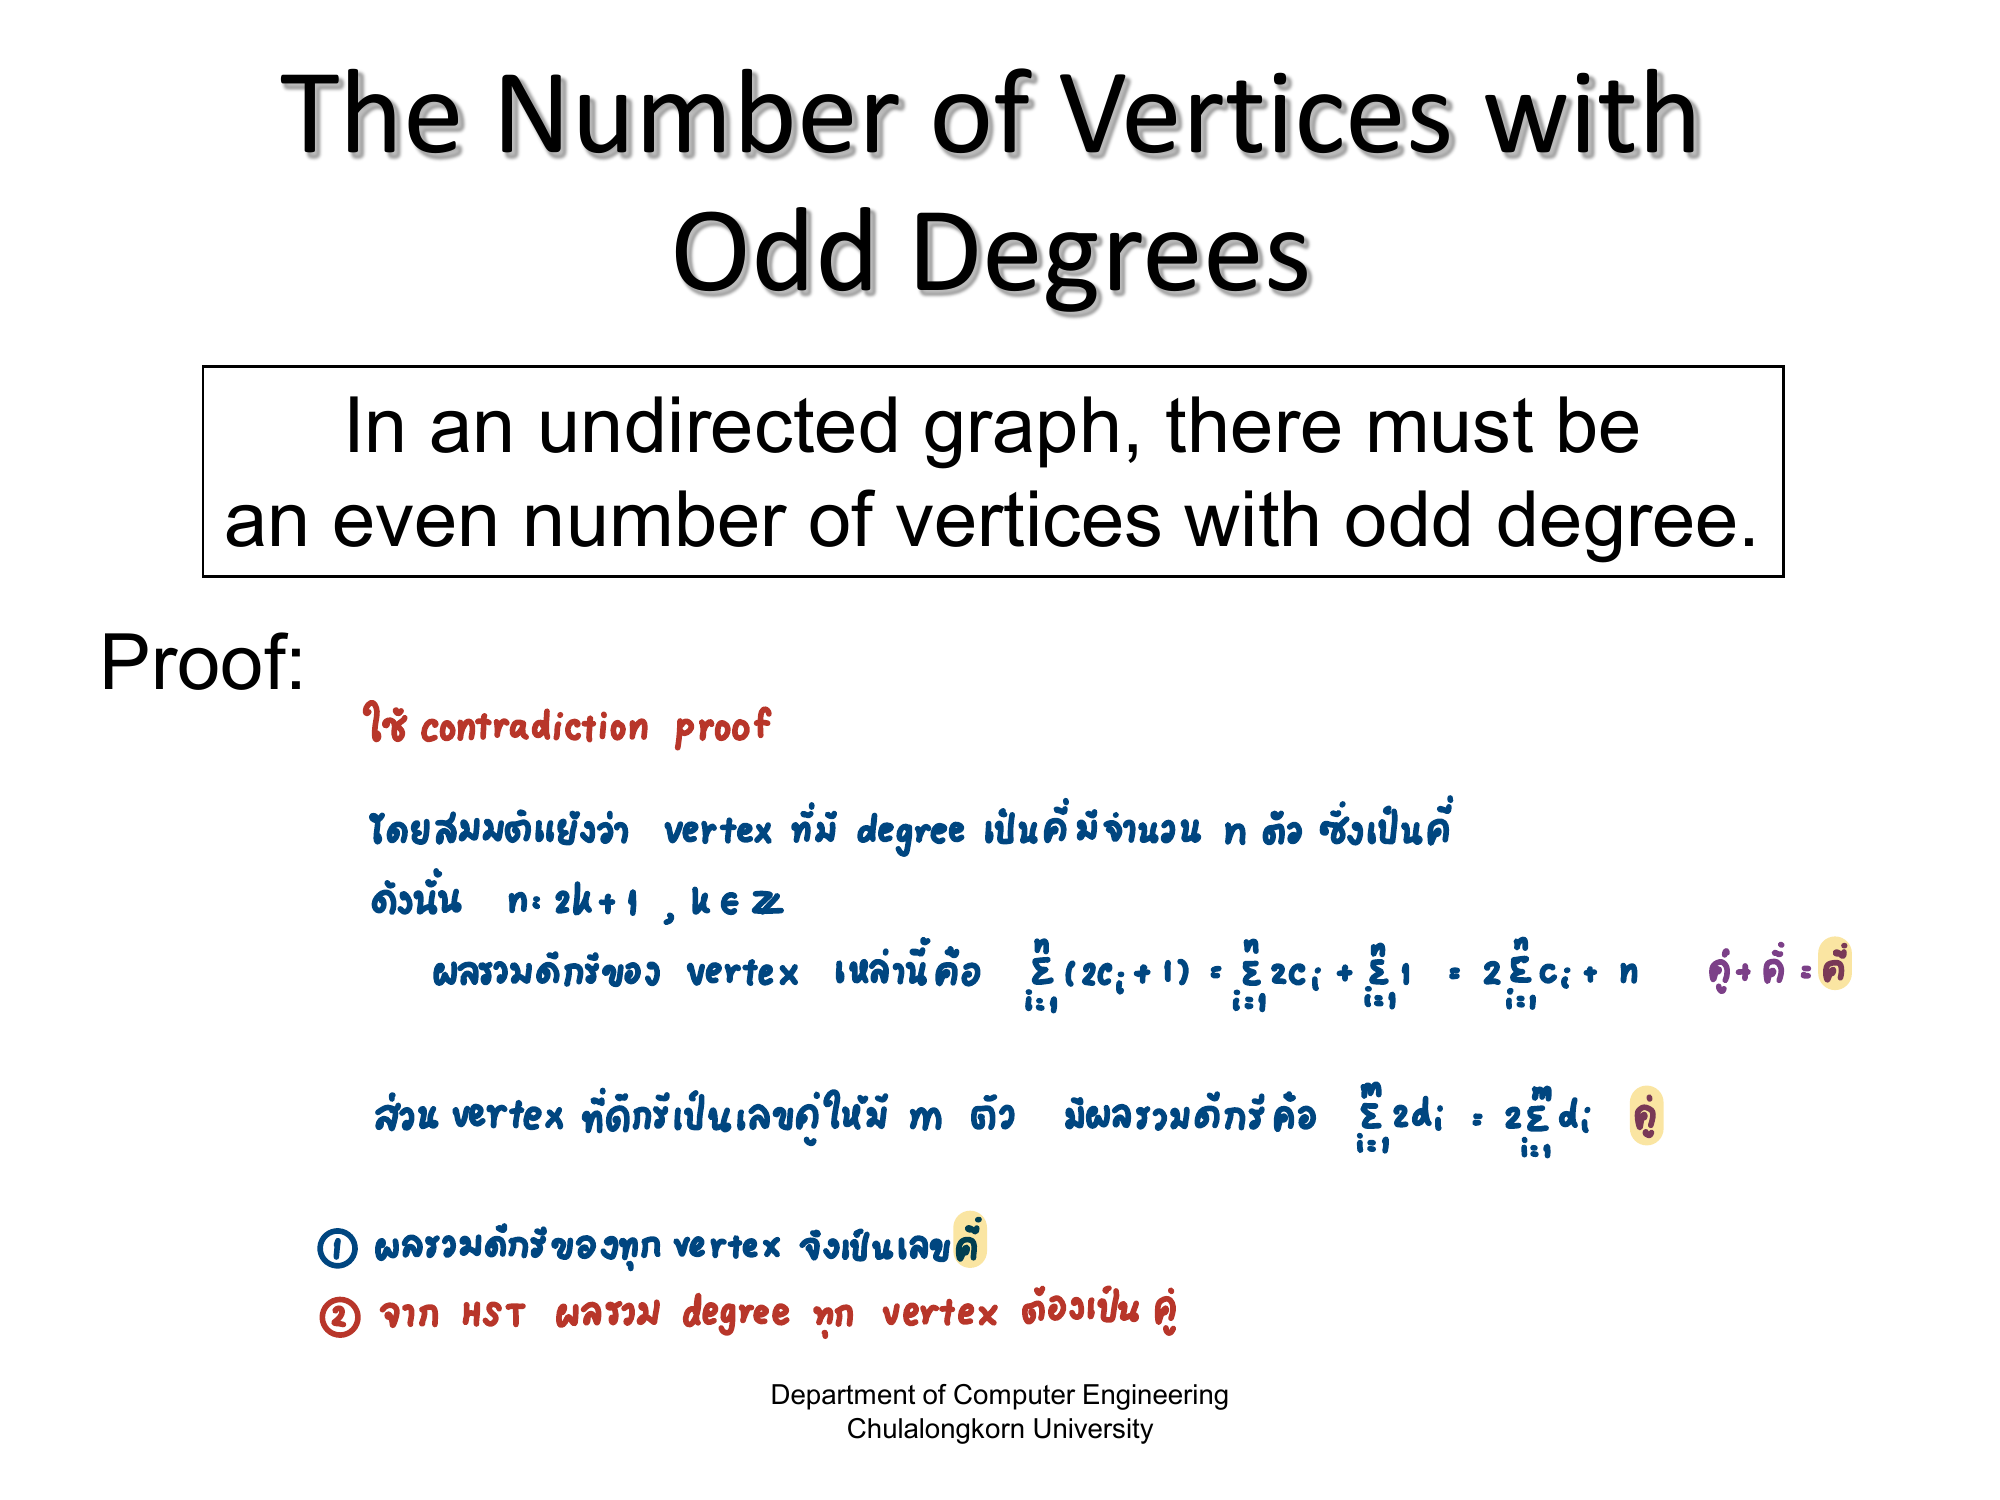 The Number of Vertices with
Odd Degrees
In an undirected graph, there must be
an even number of vertices with odd degree.
Proof:
ใช้ contradiction proof
โดยสมมติแย้งว่า vertex ที่มี degree เป็นคี่ มีจำนวน n ตัว ซึ่งเป็นคี่
ดังนั้น n = 2k + 1 , k ∈ ℤ
ผลรวมดีกรีของ vertex เหล่านี้ คือ ∑_{i=1}^{n} (2c_i + 1) = ∑_{i=1}^{n} 2c_i + ∑_{i=1}^{n} 1 = 2 ∑_{i=1}^{n} c_i + n คู่ + คี่ = คี่
ส่วน vertex ที่ดีกรีเป็นเลขคู่ ให้มี m ตัว มีผลรวมดีกรี คือ ∑_{i=1}^{m} 2d_i = 2 ∑_{i=1}^{m} d_i คู่
① ผลรวมดีกรีของทุก vertex จึงเป็นเลขคี่
② จาก HST ผลรวม degree ทุก vertex ต้องเป็น คู่
Department of Computer Engineering
Chulalongkorn University